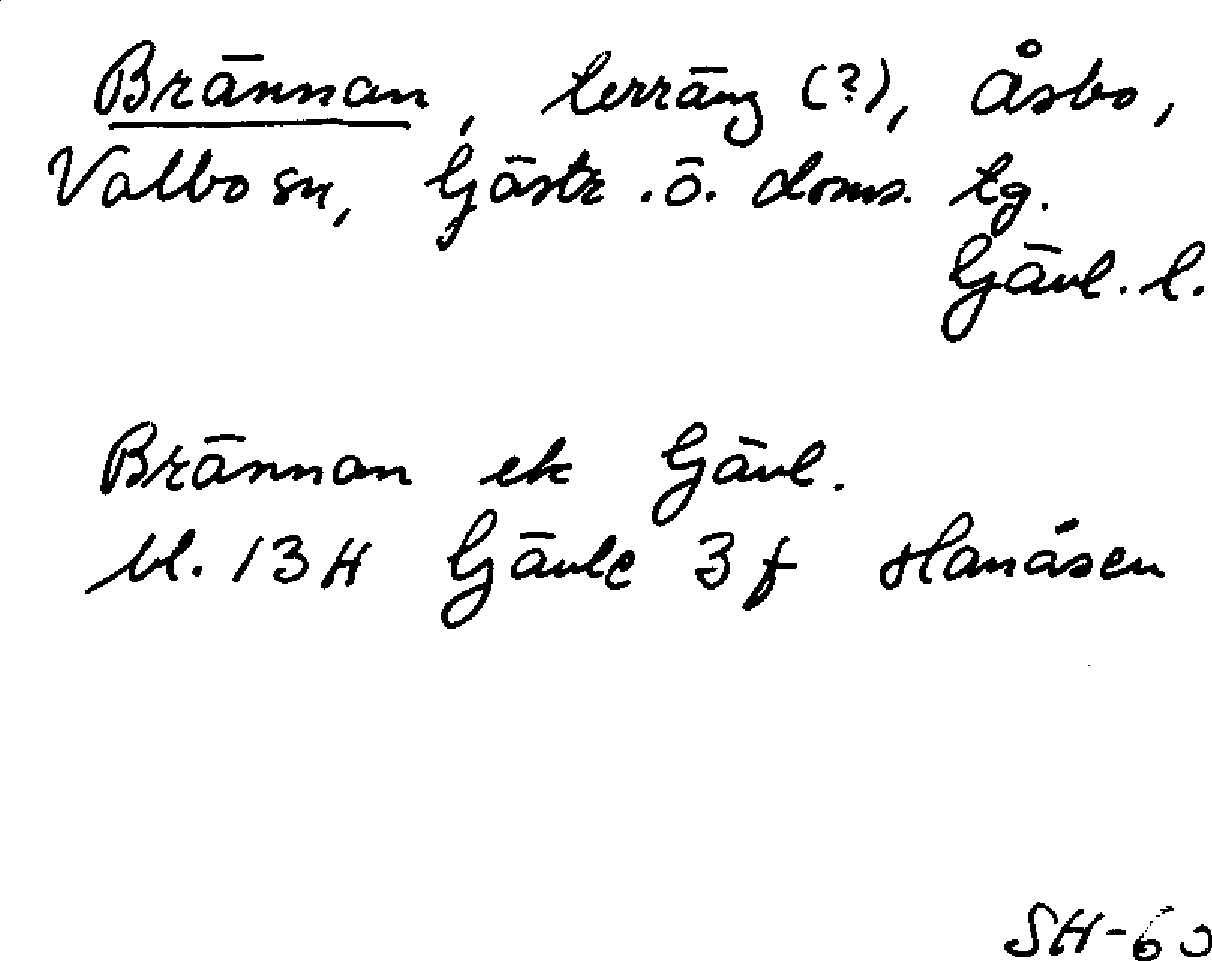 Brännan, terräng (?), Åsbo,
Valbo sn, Gästr. ö. doms. tg.
Gävl. l.
Brännan ek Gävl.
bl. 13H Gävle 3f Hanåsen
SH-60